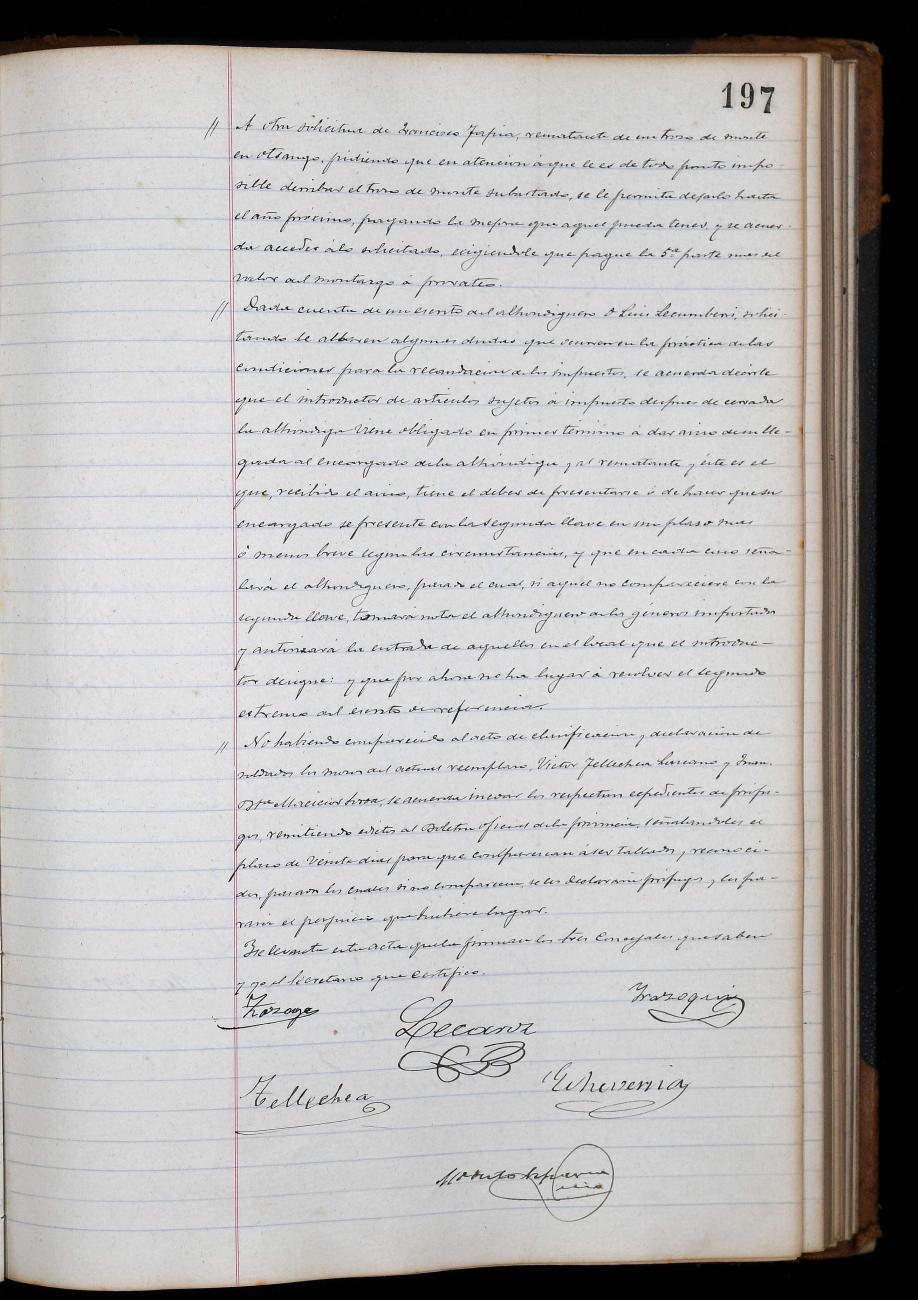 197
// A otra solicitud de Francisco Tapia, rematante de un trozo de monte
en Otsango, pidiendo que en atencion á que le es de todo punto impo-
sible derribar el trozo de monte subastado, se le permita dejarlo hasta
el año próximo, pagando la mejora que aquel pueda tener, y se acuer-
da acceder á lo solicitado, exigiendole que pague la 5ª parte mas del
valor del montazgo á prorrateo.
// Dada cuenta de un escrito del alhondiguero D Luis Lecumberri, solici-
tando le aclaren algunas dudas que ocurren en la práctica de las
condiciones para la recaudacion de los impuestos, se acuerda decirle
que el introductor de articulos sujetos á impuesto despues de cerrada
la alhóndiga viene obligado en primer término á dar aviso de su lle-
gada al encargado de la alhóndiga y al rematante y éste es el
que, recibido el aviso, tiene el deber de presentarse ó de hacer que su
encargado se presente con la segunda llave en un plazo mas
ó menos breve segun las circunstancias, y que en cada caso seña-
lará el alhondiguero, pasado el cual, si aquel no compareciere con la
segunda llave, tomará nota el alhondiguero de los géneros importados
y autorizará la entrada de aquellos en el local que el introduc-
tor designe: y que por ahora no ha lugar á resolver el segundo
estremo del escrito de referencia.
// No habiendo comparecido al acto de clasificacion y declaracion de
soldados los mozos del actual reemplazo, Victor Tellechea Lazcano y Juan
Bta, se acuerda incoar los respectivos espedientes de prófu-
gos, remitiendo edictos al Boletin oficial de la provincia, señalandoles el
plazo de veinte dias para que comparezcan á ser tallados y reconoci-
dos, pasados los cuales si no comparecen, se les declarará prófugos y les pa-
rará el perjuicio que hubiere lugar.
Y se levanta esta acta que la firman los tres Concejales que saben
y yo el Secretario que certifico.
Irazoqui
Lecaroz
Tellechea
Echeverria